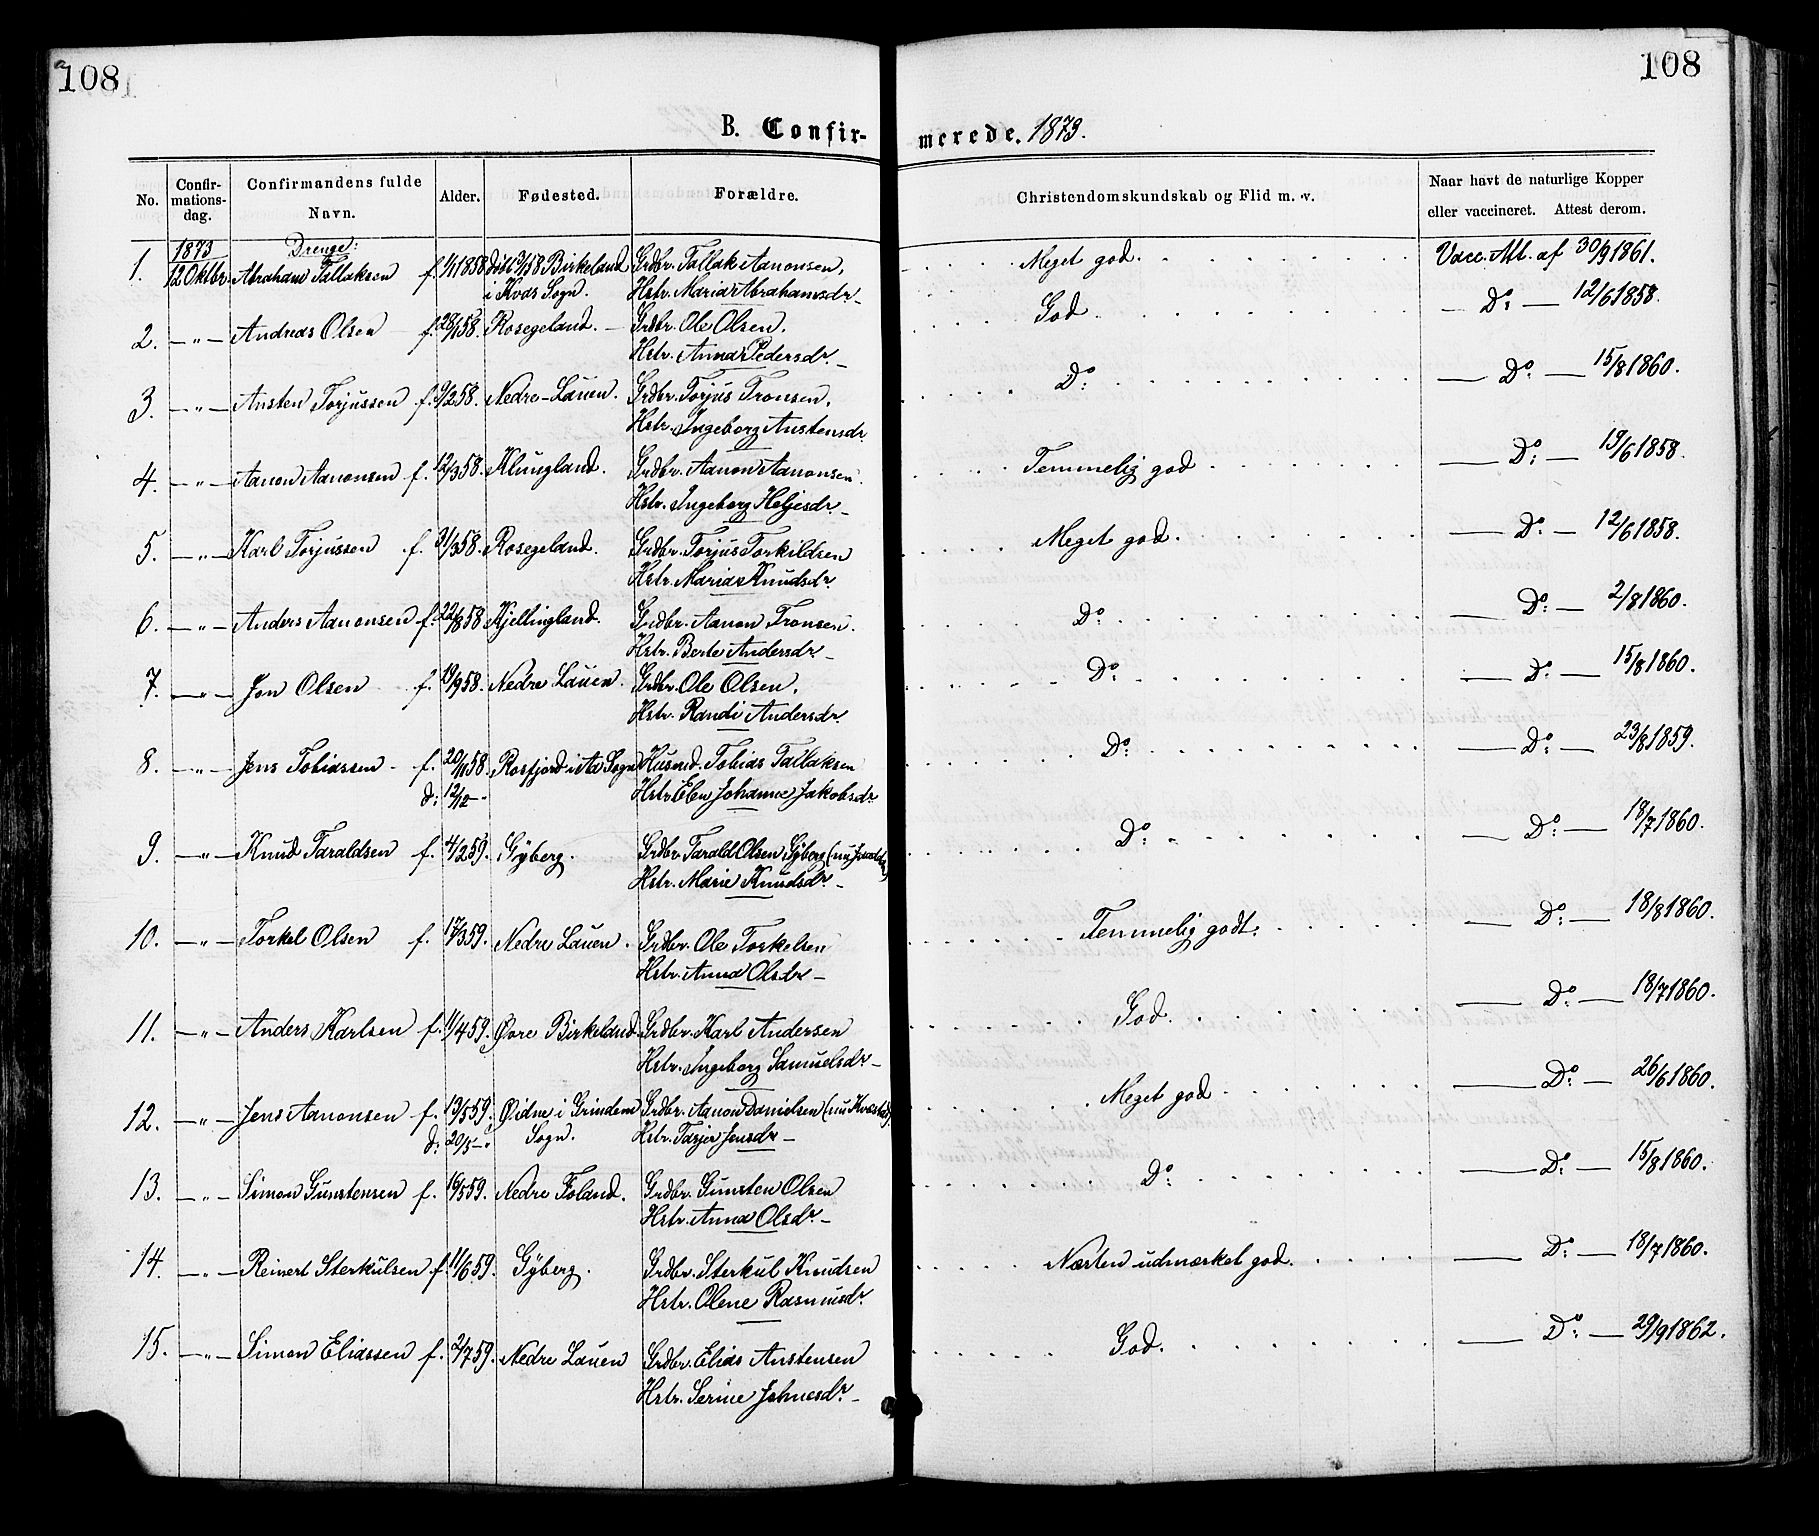 108
108
B. Confir-
merede. 1873.
No.
Confir-
mations-
dag.
Confirmandens fulde
Navn.
Alder.
Fødested.
Forældre.
Christendomskundskab og Flid m. v.
Naar havt de naturlige Kopper
eller vaccineret. Attest derom.
1873
Drenge:
1. 12 Oktbr. Abraham Tallaksen f. 1/1 1858 Birkeland Grdbr. Tallak Aanonsen, Meget god. Vacc. Att. af 30/9 1861.
i Kvås Sogn. Hstr. Maria Abrahamsdr.
2. —"— Andreas Olsen f. 28/1 58. Rosegeland. — Grdbr. Ole Olsen. God. D: — 12/6 1858.
Hstr. Anna Pedersdr. —
3. —"— Ansten Torjussen f. 9/2 58. Nedre-Lauen. Grdbr. Torjus Tronsen. D: — D: — 15/8 1860.
Hstr. Ingeborg Anstensdr.
4. —"— Aanon Aanonsen f. 12/3 58. Klungland. Grdbr. Aanon Aanonsen. Temmelig god — D: — 19/6 1858.
Hstr. Ingeborg Heljesdr. —
5. —"— Karl Torjussen f. 31/3 58. Rosegeland. Grdbr. Torjus Torkildsen Meget god. — D: — 12/6 1858.
Hstr. Maria Knudsdr.
6. —"— Anders Aanonsen f. 22/8 58 Kjellingland. Grdbr. Aanon Tronsen. D: — D: — 2/8 1860.
Hstr. Berte Andersdr. —
7. —"— Jon Olsen f. 19/9 58. Nedre Lauen. Grdbr. Ole Olsen. D: — D: — 15/8 1860.
Hstr. Randi Andersdr.
8. —"— Jens Tobiassen f. 20/11 58. Rosfjord i Sogn Husmd. Tobias Tallaksen D: — D: — 23/8 1859.
d: 12/12 —" Hstr. Elen Johanne Jakobsdr.
9. —"— Knud Taraldsen f. 4/2 59. Gyberg. Grdbr. Tarald Olsen Gyberg (nu D: — D: — 18/7 1860.
Hstr. Marie Knudsdr. —
10. —"— Torkel Olsen f. 17/3 59. Nedre Lauen. Grdbr. Ole Torkelsen Temmelig godt. — D: — 18/8 1860.
Hstr. Anna Olsdr —
11. —"— Anders Karlsen f. 11/4 59. Øvre Birkeland Grdbr. Karl Andersen God. — D: — 18/7 1860.
Hstr. Ingeborg Samuelsdr. —
12. —"— Jens Aanonsen f. 13/5 59. Øidne i Grindem Grdbr. Aanon Danielsen (nu Meget god — D: — 26/6 1860.
d: 20/5 —" Sogn. Hstr. Tarjer Jensdr —
13. —"— Simon Gunstensen f. 16/5 59. Nedre Foland. Grdbr. Gunsten Olsen D: — D: — 15/8 1860.
Hstr. Anna Olsdr. —
14. —"— Reinert Sterkulsen f. 11/6 59. Gyberg. Grdbr. Sterkul Knudsen Næsten udmærket god. — D: — 18/7 1860.
Hstr. Olene Rasmusdr.
15. —"— Simon Eliassen f. 2/7 59. Nedre Lauen Grdbr. Elias Anstensen God. — D: — 29/9 1862.
Hstr. Serine Johnesdr. —